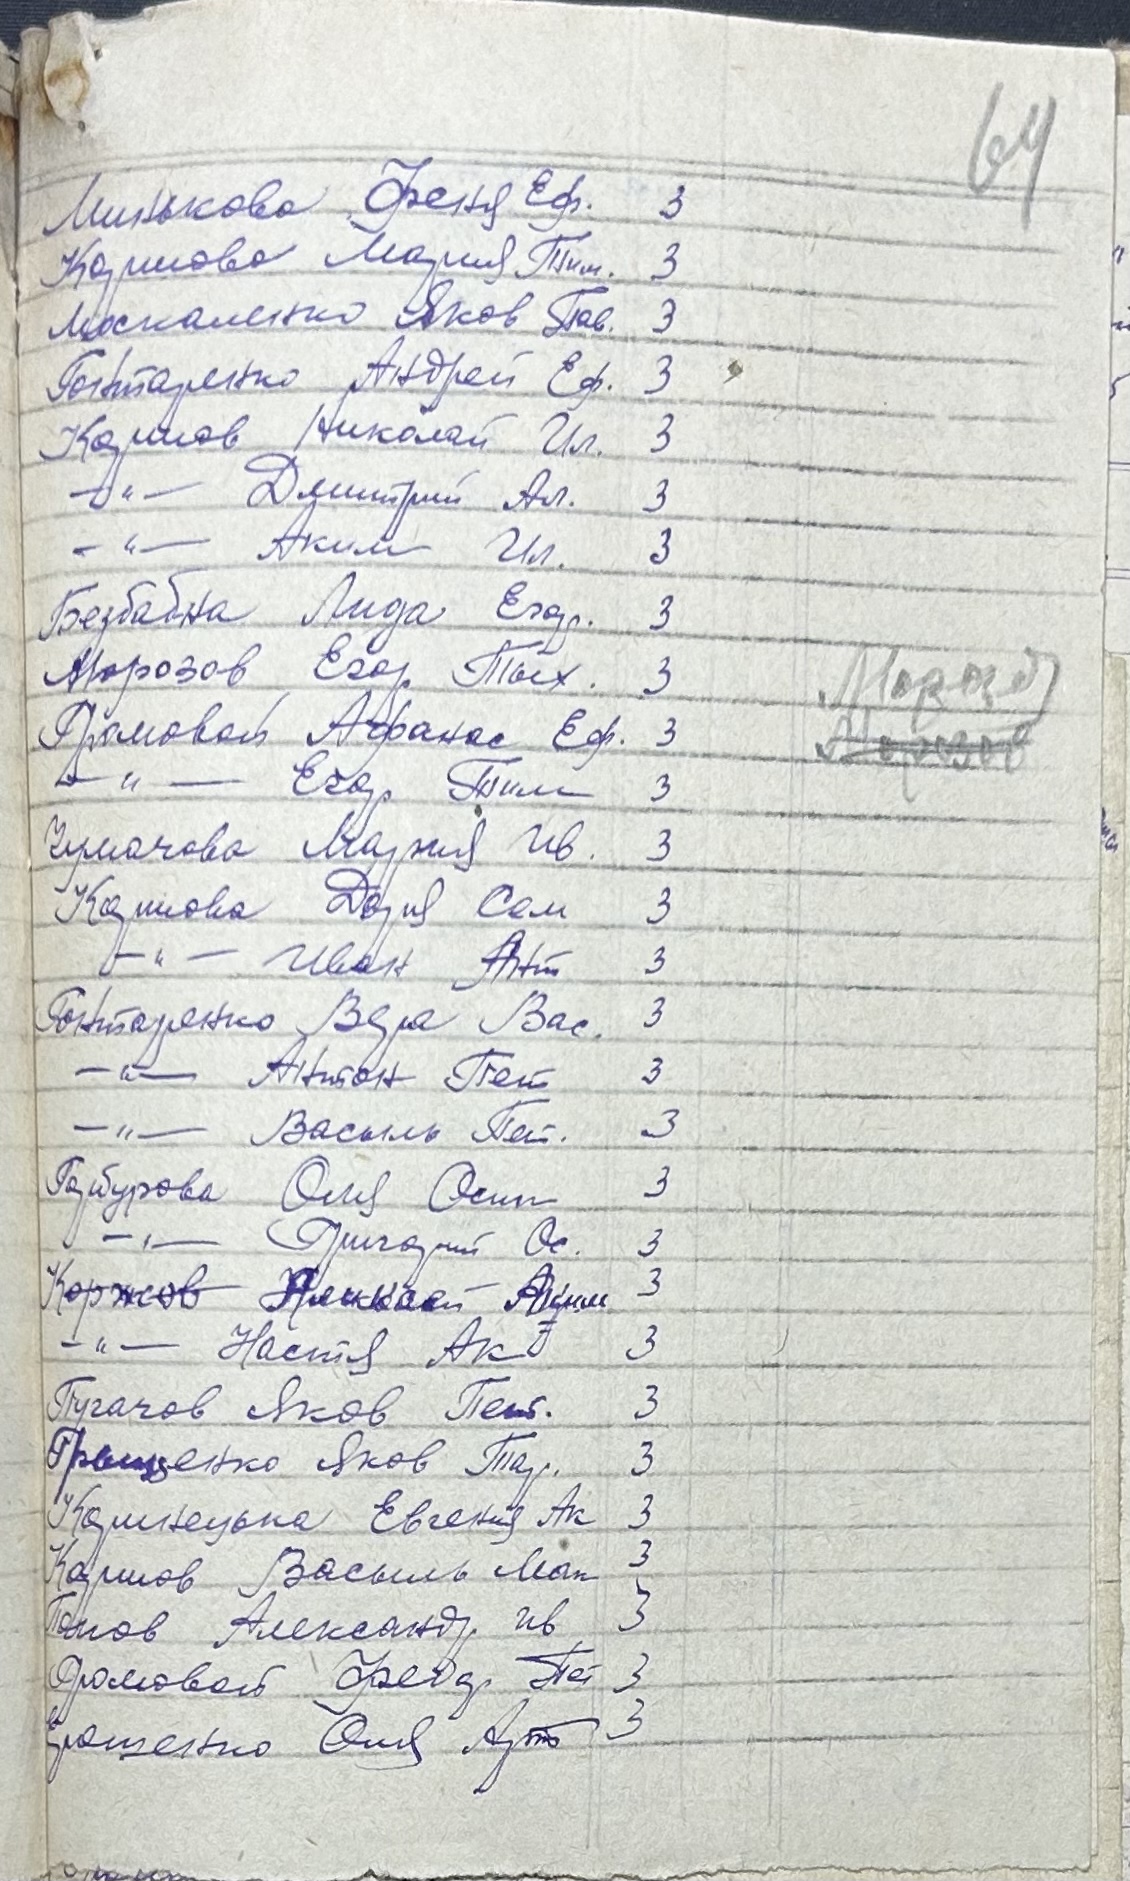 64
Минькова Френя Еф. 3
Карпова Мария Тим. 3
Москаленко Яков Пав. 3
Гонтаренко Андрей Еф. 3
Карпов Николай Ил. 3
-"- Дмитрий Ал. 3
-"- Аким Ил. 3
Безбабна Лида Егор. 3
Морозов Егор Тих. 3
Громовой Афанас Еф. 3
Морозов
-"- Егор Тим 3
Чумачова Мария Ив. 3
Карпова Дария Сем 3
-"- Иван Ант 3
Гонтаренко Вера Вас. 3
-"- Антон Пет 3
-"- Васыль Пет. 3
Гарбузова Оля Осип 3
-"- Григорий Ос. 3
Коржов Николай Аким 3
-"- Настя Ак 3
Пугачов Яков Пет. 3
Грищенко Яков Тар. 3
Евгения Ак 3
Карпов Васыль Мак 3
Попов Александр Ив 3
Громовой Федор Пет 3
Ерошенко Оля 3